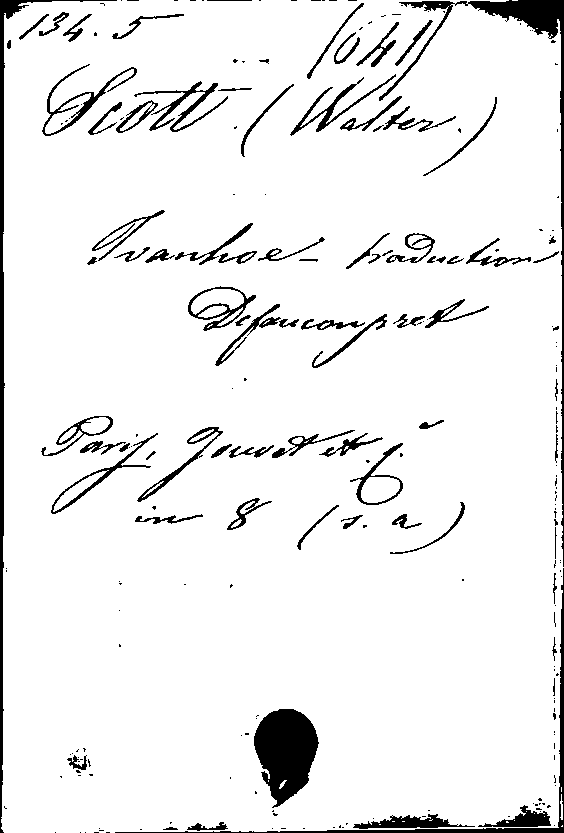 134.5 (641)
Scott (Walter.)
Ivanhoe - traduction
Defauconpret
Paris, Jouvet et C.ie
in 8 (s. a)